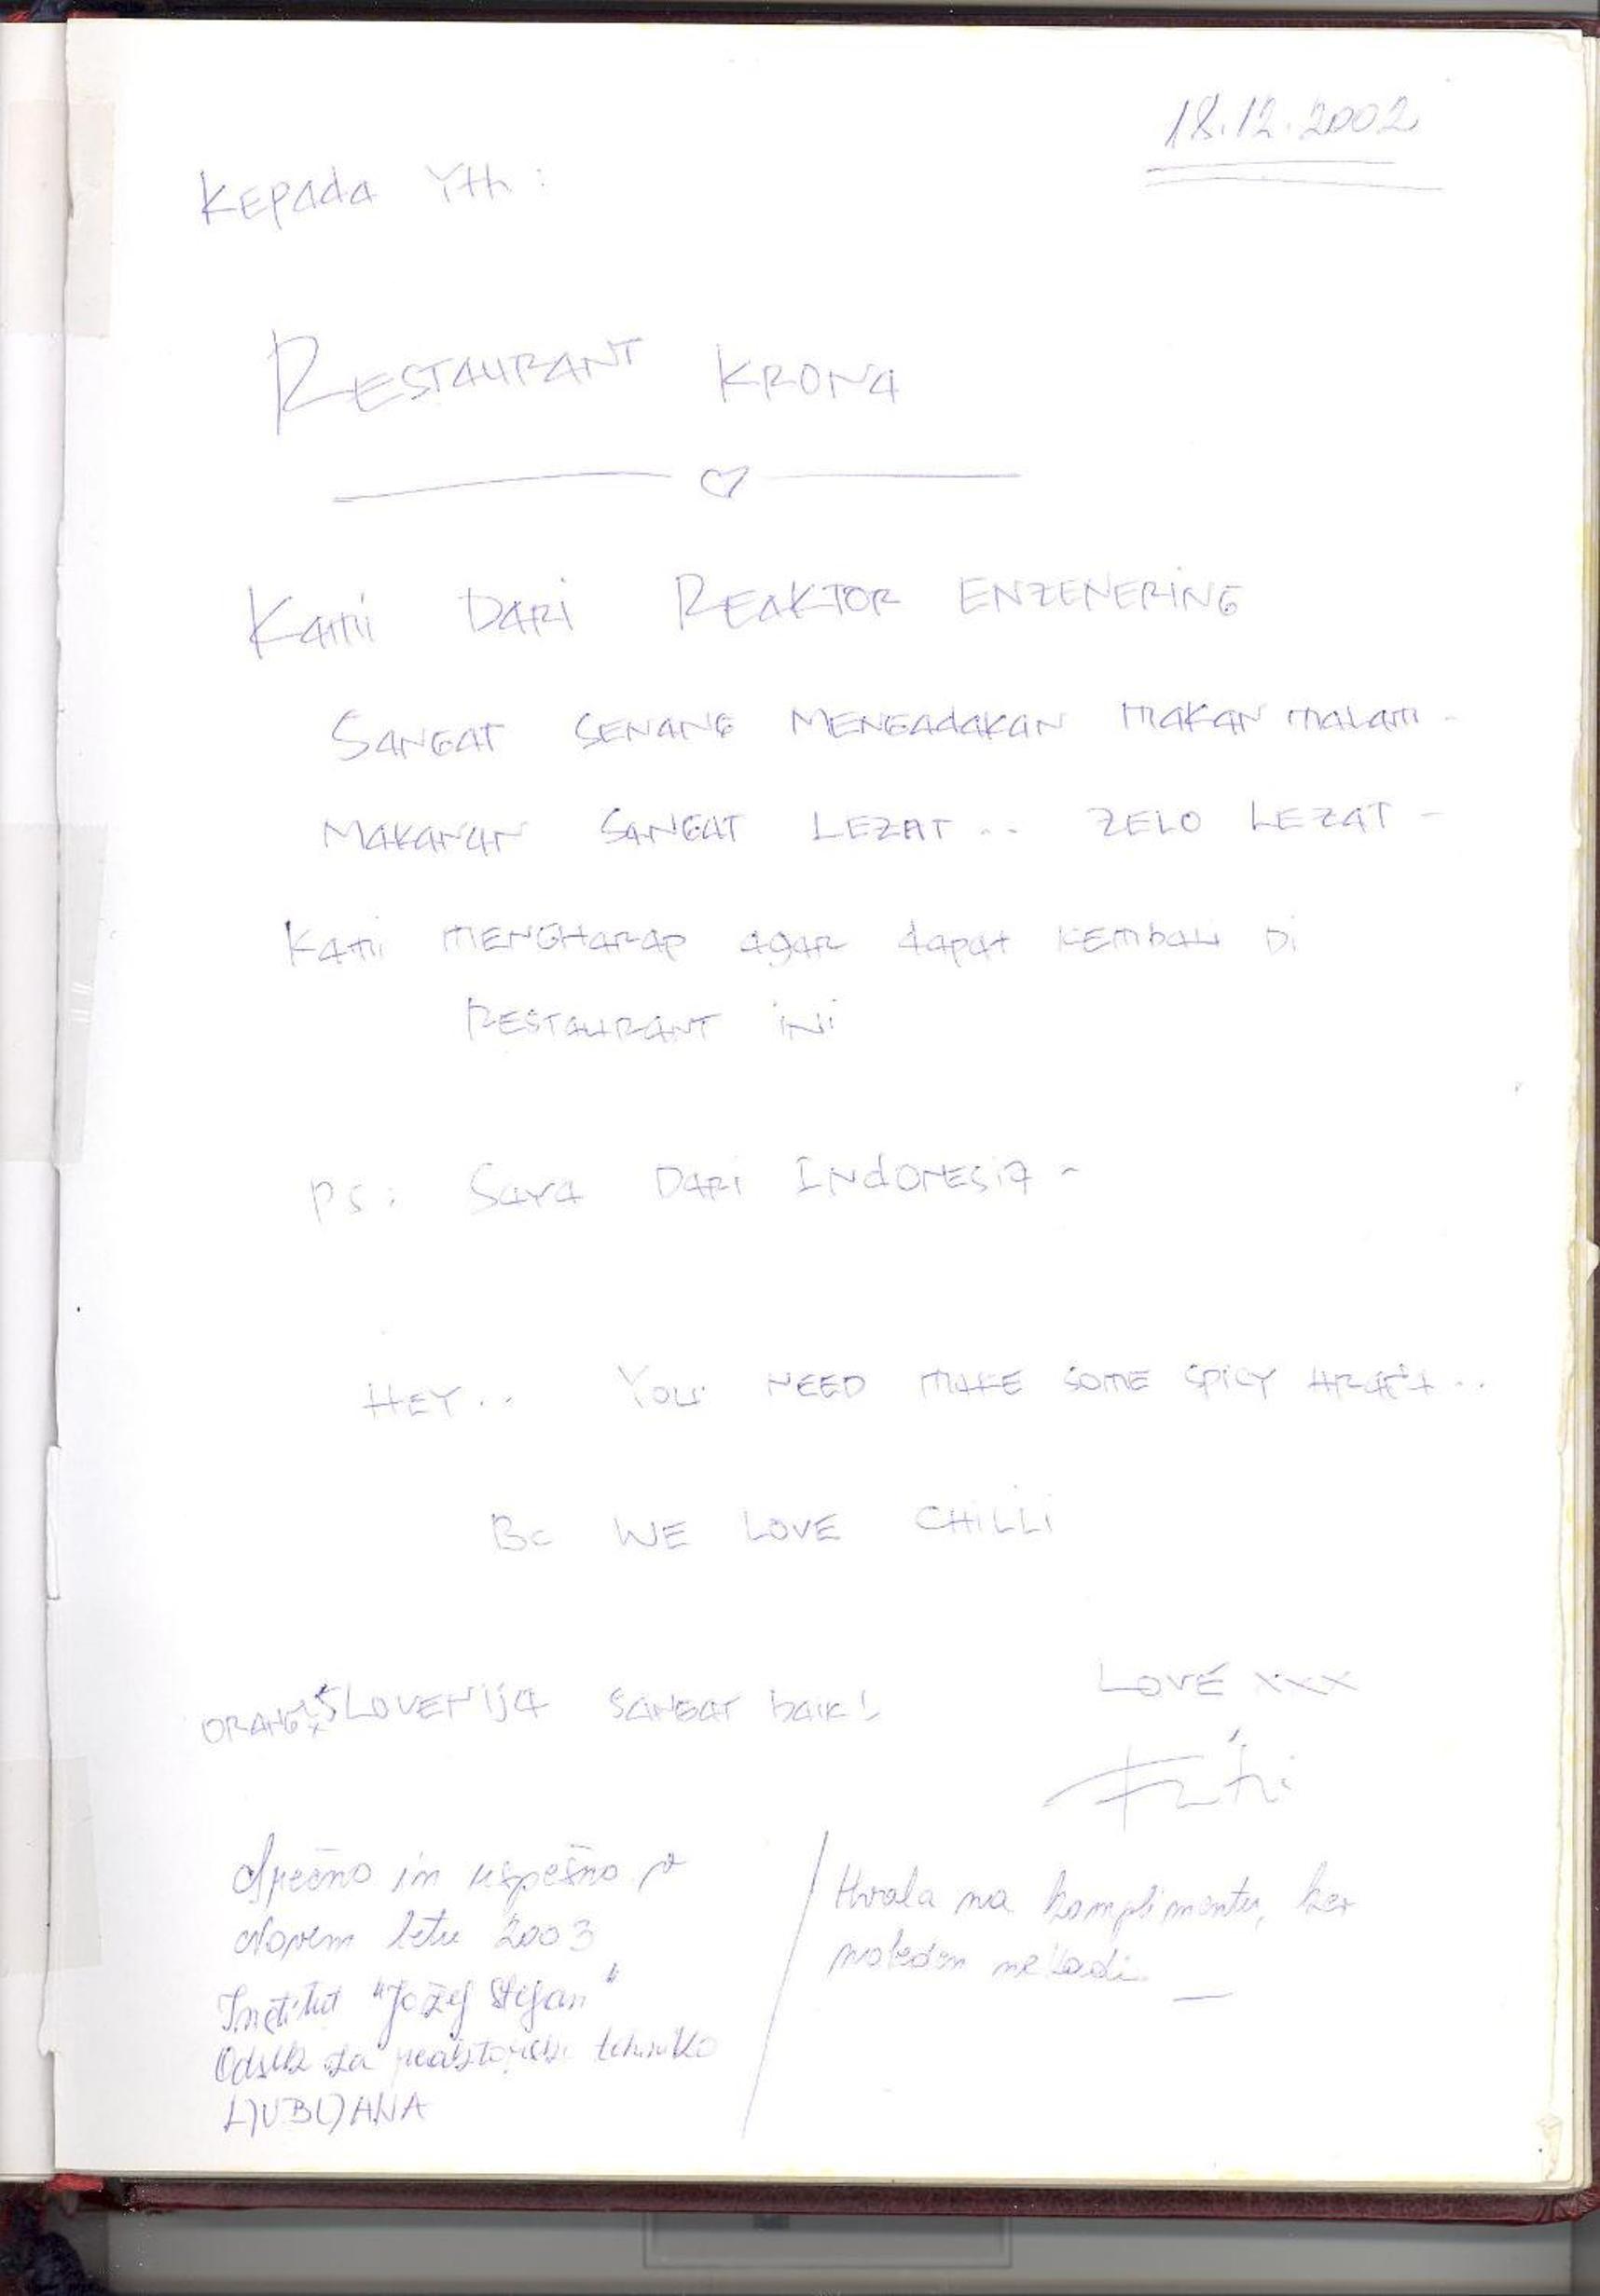 18.12.2002
Kepada Yth :
RESTAURANT KRONA
KAMI DARI REAKTOR ENZENERING
SANGAT SENANG MENGADAKAN MAKAN MALAM -
MAKANAN SANGAT LEZAT .. ZELO LEZAT -
KAMI MENGHARAP agar dapat KEMBALI Di
RESTAURANT iNi
PS: SAYA DARI INDONESIA -
HEY .. YOU NEED MAKE SOME SPICY ..
BC WE LOVE CHILLI
LOVE xxx
ORANG SLOVENIJA SANGAT baik!
Fitri
Srečno in uspešno v
Novem letu 2003
Institut "Jožef Stefan"
Odsek za reaktorsko tehniko
LJUBLJANA
Hvala na komplimentu, ker
nobeden ne kadi.